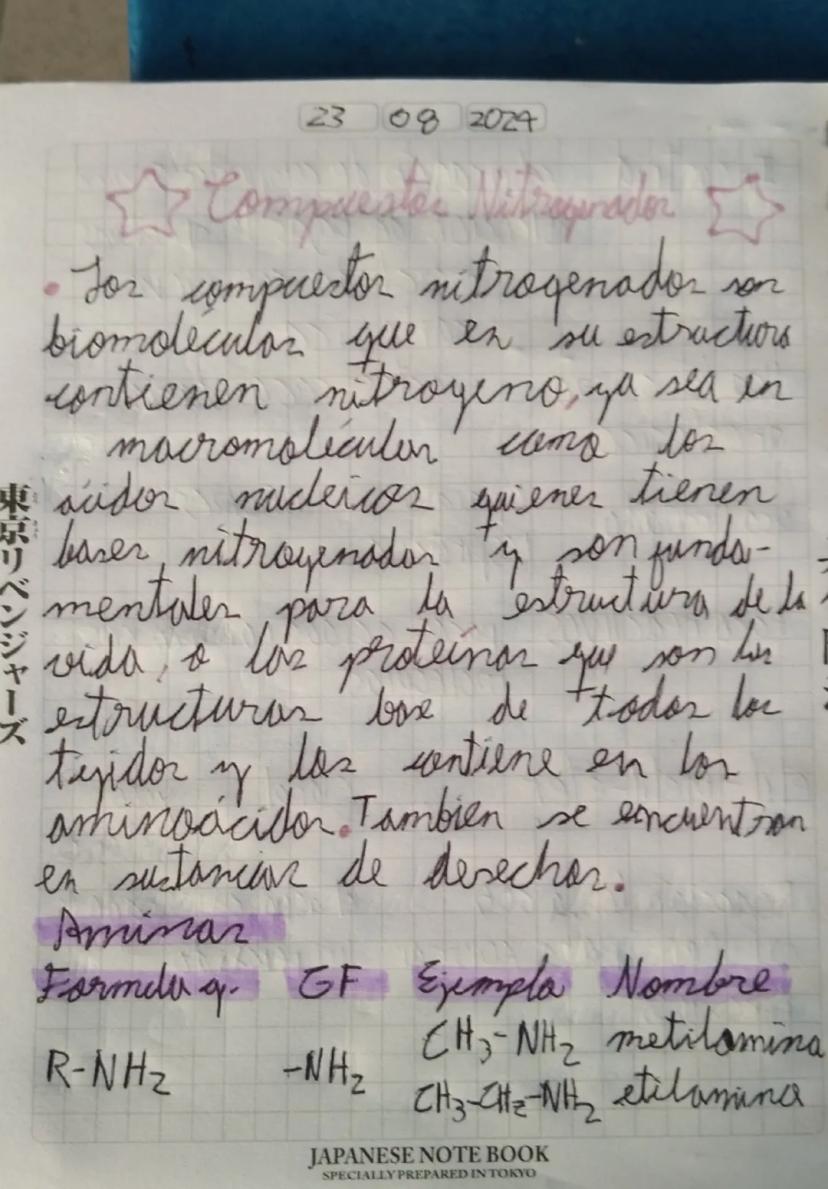 23 08 2024
Compuestos Nitrogenados
• Los compuestos nitrogenados son
biomoléculas que en su estructura
contienen nitrogeno, ya sea en
macromoléculas como los
ácidos nucleicos quienes tienen
bases nitrogenadas y son funda-
mentales para la estructura de la
vida, o las proteínas que son las
estructuras base de todos los
tejidos y las contiene en los
aminoácidos. Tambien se encuentran
en sustancias de desechos.
Aminas
Formula g. GF Ejemplo Nombre
CH3-NH2 metilamina
R-NH2 -NH2
CH3-CH2-NH2 etilamina
東京リベンジャーズ
JAPANESE NOTE BOOK
SPECIALLY PREPARED IN TOKYO